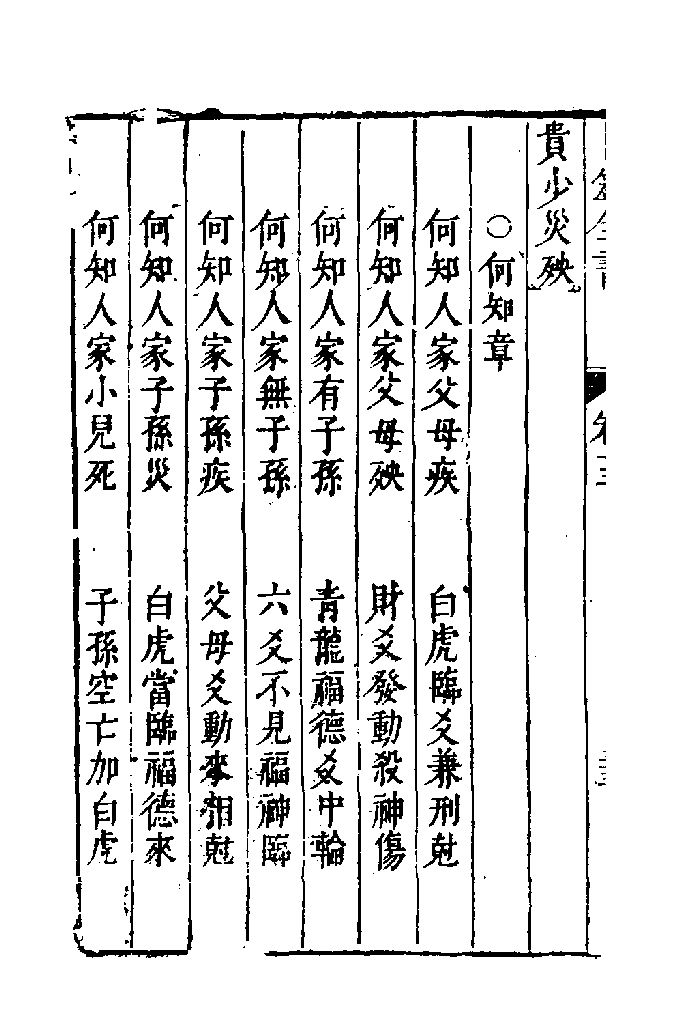 貴少災殃
○何知章
何知人家父母疾　白虎臨爻兼刑尅
何知人家父母殃　財爻發動殺神傷
何知人家有子孫　青龍福德爻中輪
何知人家無子孫　六爻不見福神臨
何知人家子孫疾　父母爻動來相尅
何知人家子孫災　白虎當臨福德來
何知人家小兒死　子孫空亡加白虎